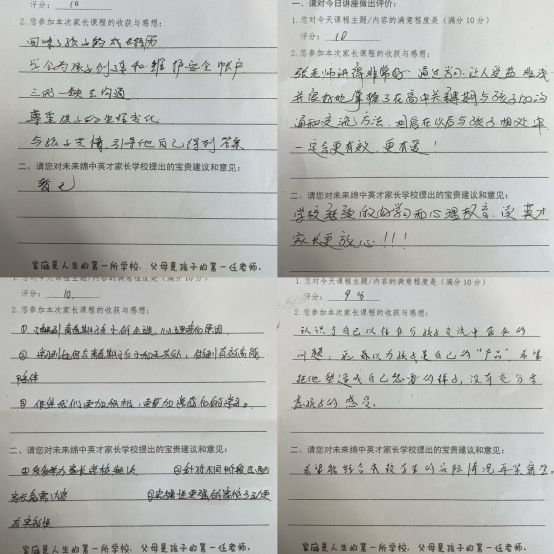 评分：10
2.您参加本次家长课程的收获与感想：
回顾了孩子的成长经历
学会为孩子创建和维护安全账户
三明一缺去沟通
尊重孩子的生理变化
与孩子共情，引导他自己得到答案
二、请您对未来绵中英才家长学校提出的宝贵建议和意见：
暂无
家庭是人生的第一所学校，父母是孩子的第一任老师。
一、请对今日讲座做出评价：
1.您对今天课程主题/内容的满意程度是（满分10分）
评分：10
2.您参加本次家长课程的收获与感想：
张老师讲得非常好，通过学习，让人受益匪浅
并很好地掌握了在高中关键期与孩子的沟
通和交流方法，相信在以后与孩子相处中
一定会更有效，更有爱！
二、请您对未来绵中英才家长学校提出的宝贵建议和意见：
学校继续做好学习和心理教育，读英才
家长更放心！！！
1.您对今天课程主题/内容的满意程度是（满分10分）
评分：10
2.您参加本次家长课程的收获与感想：
①了解到青春期孩子的生理、心理变化的原因
②学到如何与青春期孩子和平共处，做到有效陪
③促使我们更加积极，更努力
二、请您对未来绵中英才家长学校提出的宝贵建议和意见：
①多多举办家长学校 ②针对不同阶段
家长 内容 ③
有实效性
家庭是人生的第一所学校，父母是孩子的第一任老师。
1.您对今天课程主题/内容的满意程度是（满分10分）
评分：9分
2.您参加本次家长课程的收获与感想：
认识了自己以往在与孩子交流中存在的
问题，总是以为孩子是自己的“产品”，希望
把他塑造成自己想要的样子，没有充分考
虑孩子的感受。
二、请您对未来绵中英才家长学校提出的宝贵建议和意见：
希望能结合我校学生的实际情况
家庭是人生的第一所学校，父母是孩子的第一任老师。